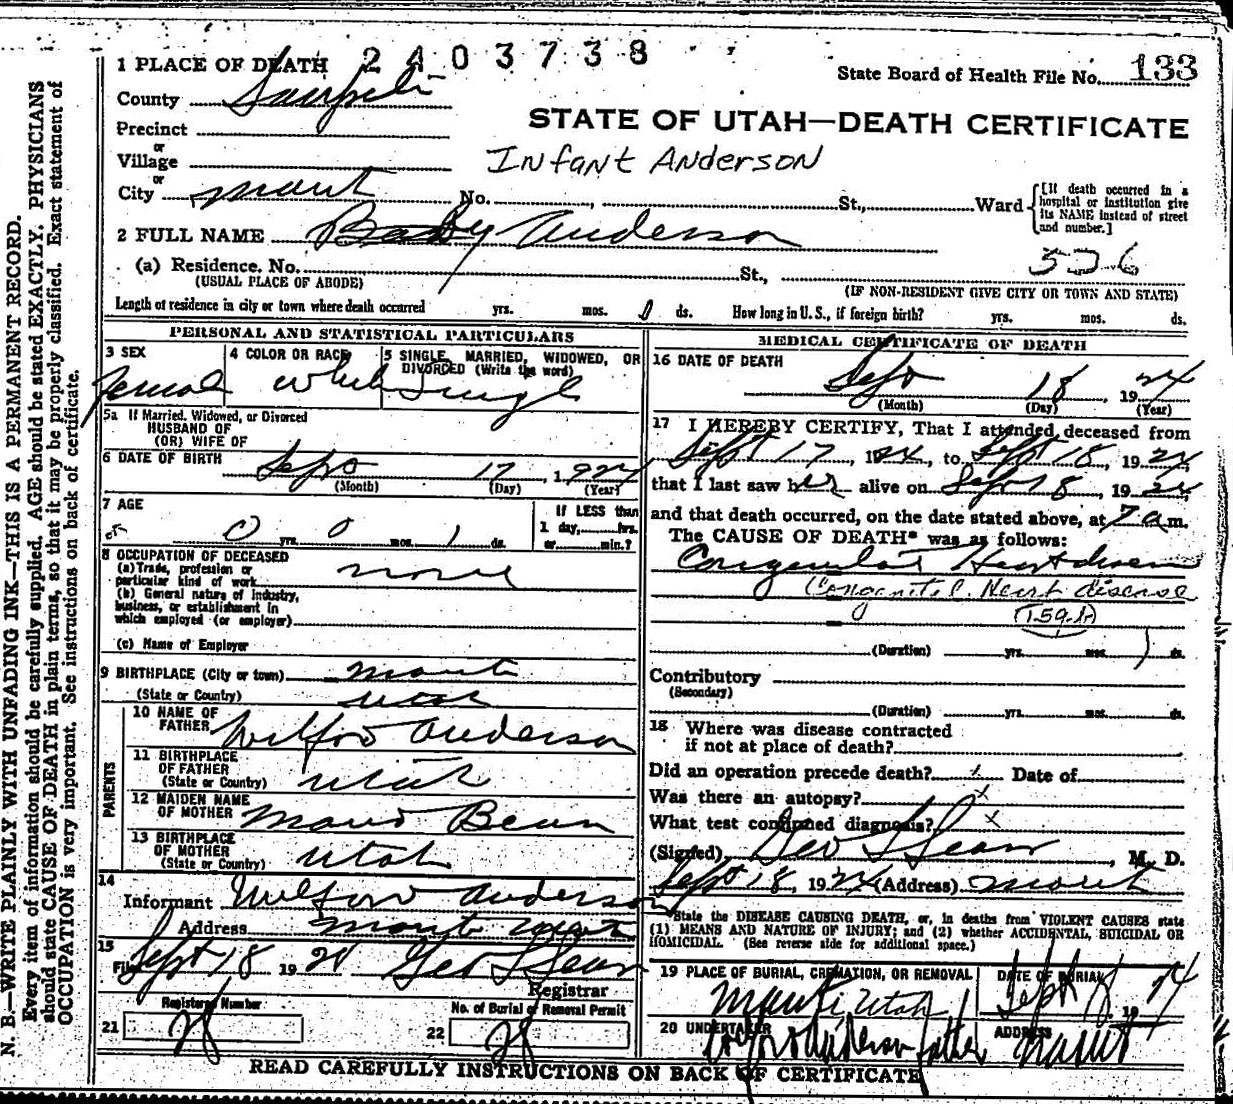 2403738
State Board of Health File No. 133
1 PLACE OF DEATH
County Sanpete
STATE OF UTAH—DEATH CERTIFICATE
Precinct
or
Village
Infant Anderson
or
City Manti No. , St., Ward
[If death occurred in a hospital or institution give its NAME instead of street and number.]
2 FULL NAME Baby Anderson
(a) Residence. No. St.,
(USUAL PLACE OF ABODE)
(IF NON-RESIDENT GIVE CITY OR TOWN AND STATE)
Length of residence in city or town where death occurred yrs. mos. ds. How long in U.S., if foreign birth? yrs. mos. ds.
PERSONAL AND STATISTICAL PARTICULARS
3 SEX
Female
4 COLOR OR RACE
White
5 SINGLE, MARRIED, WIDOWED, OR
DIVORCED (Write the word)
Single
5a If Married, Widowed, or Divorced
HUSBAND OF
(OR) WIFE OF
6 DATE OF BIRTH Sept 17, 1924
(Month) (Day) (Year)
7 AGE
0 yrs. 0 mos. 1 ds.
If LESS than
1 day, hrs.
or min.?
8 OCCUPATION OF DECEASED
(a) Trade, profession or
particular kind of work none
(b) General nature of industry,
business, or establishment in
which employed (or employer)
(c) Name of Employer
9 BIRTHPLACE (City or town) Manti
(State or Country) Utah
PARENTS
10 NAME OF
FATHER Wilford Anderson
11 BIRTHPLACE
OF FATHER
(State or Country) Utah
12 MAIDEN NAME
OF MOTHER Maud
13 BIRTHPLACE
OF MOTHER
(State or Country) Utah
14
Informant Wilford Anderson
Address Manti Utah
15
Filed Sept 18, 1924 Geo L Sears
Registrar
Registered Number
21 28
No. of Burial or Removal Permit
22 28
MEDICAL CERTIFICATE OF DEATH
16 DATE OF DEATH
Sept 18, 1924
(Month) (Day) (Year)
17 I HEREBY CERTIFY, That I attended deceased from
Sept 17, 1924, to Sept 18, 1924,
that I last saw her alive on Sept 18, 1924
and that death occurred, on the date stated above, at 7 a m.
The CAUSE OF DEATH* was as follows:
Congenital Heart disease
Congenital Heart disease
(Duration) yrs. mos. 1 ds.
Contributory
(Secondary)
(Duration) yrs. mos. ds.
18 Where was disease contracted
if not at place of death?
Did an operation precede death? x Date of
Was there an autopsy? x
What test confirmed diagnosis? x
(Signed) Geo L Sears, M. D.
Sept 18, 1924 (Address) Manti
*State the DISEASE CAUSING DEATH, or, in deaths from VIOLENT CAUSES state
(1) MEANS AND NATURE OF INJURY; and (2) whether ACCIDENTAL, SUICIDAL OR
HOMICIDAL. (See reverse side for additional space.)
19 PLACE OF BURIAL, CREMATION, OR REMOVAL
Manti Utah
DATE OF BURIAL
Sept 19 24
20 UNDERTAKER
Wilford Anderson father
ADDRESS
Manti
READ CAREFULLY INSTRUCTIONS ON BACK OF CERTIFICATE
N. B.—WRITE PLAINLY WITH UNFADING INK—THIS IS A PERMANENT RECORD.
Every item of information should be carefully supplied. AGE should be stated EXACTLY. PHYSICIANS
should state CAUSE OF DEATH in plain terms, so that it may be properly classified. Exact statement of
OCCUPATION is very important. See instructions on back of certificate.